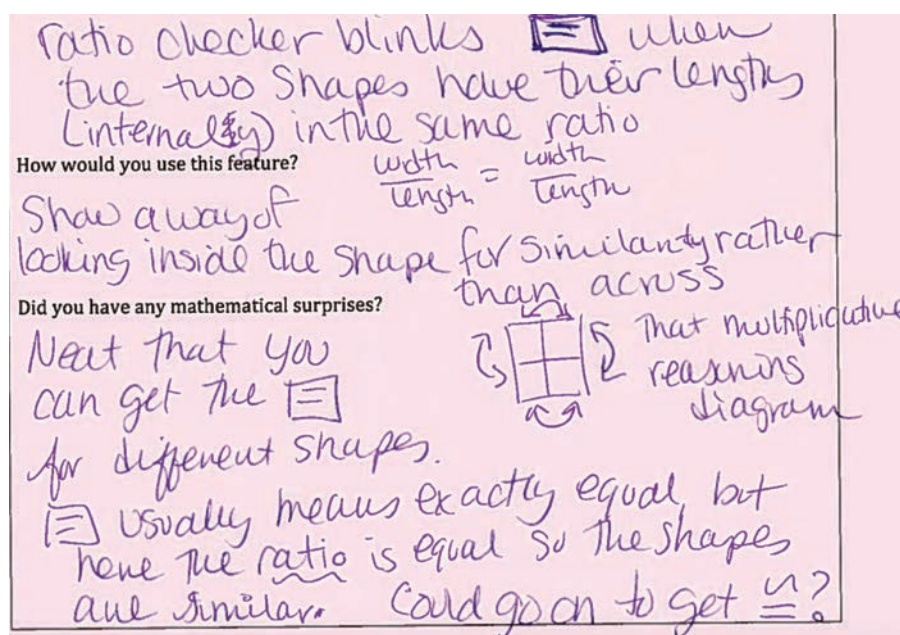 ratio checker blinks = when
the two shapes have their lengths
(internally) in the same ratio
How would you use this feature?
width/length = width/length
Show a way of
looking inside the shape for similarity rather
than across
Did you have any mathematical surprises?
Neat that you
can get the =
for different shapes.
That multiplicative
reasoning
diagram
= usually means exactly equal, but
here the ratio is equal so the shapes
are similar. Could go on to get ≌?